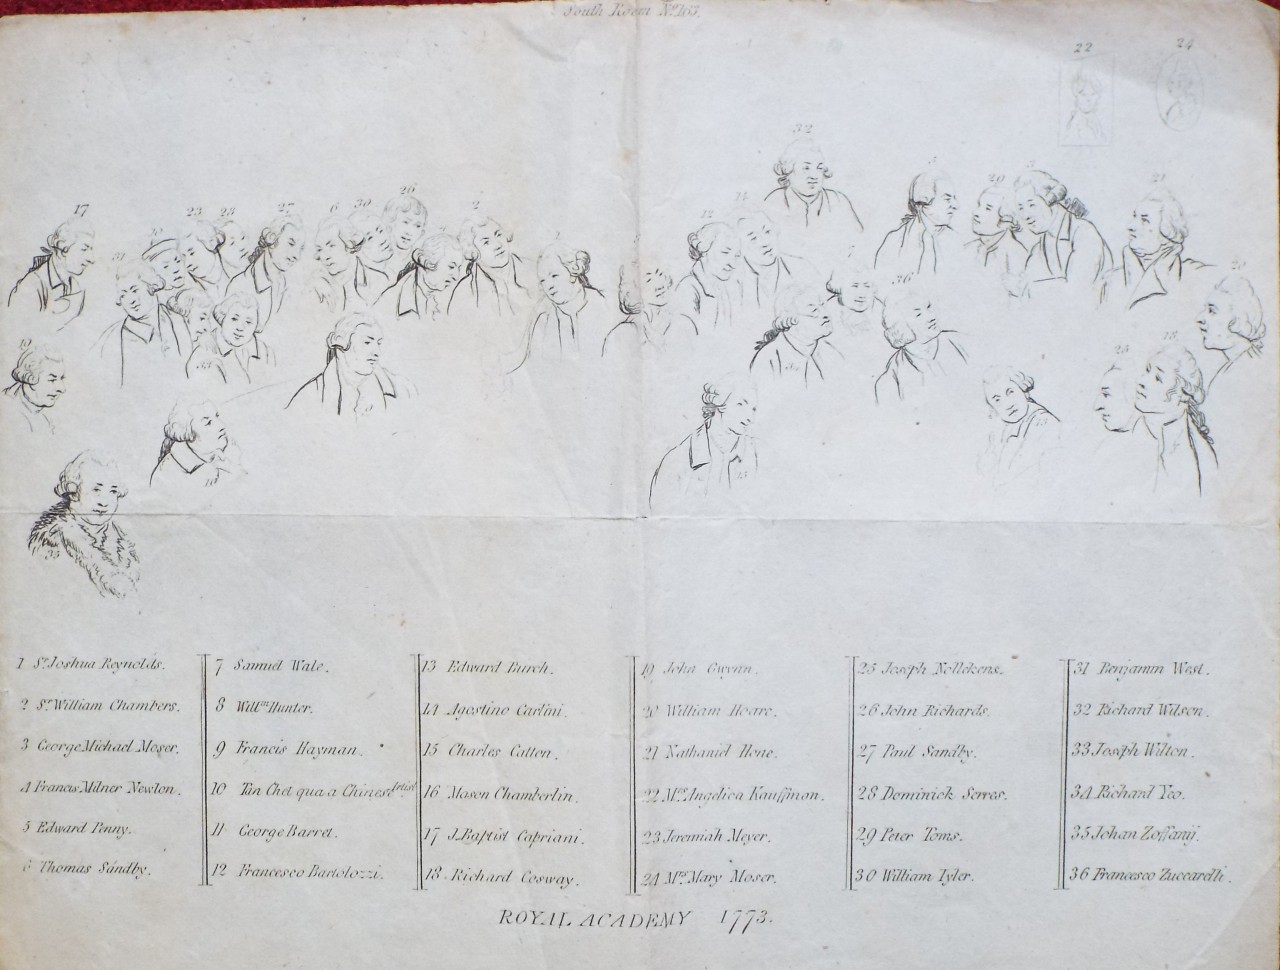 South Room No. 163.
22 24
32
17 23 28 27 6 30 26 2 12 14 29 21
31 36 20
19 25 18
9 34 15
10 13
35
1 Sr. Joshua Reynolds.
2 Sr. William Chambers.
3 George Michael Moser.
4 Francis Milner Newton.
5 Edward Penny.
6 Thomas Sandby.
7 Samuel Wale.
8 Willm Hunter.
9 Francis Hayman.
10 Tan Chet qua a Chinese Artist
11 George Barret.
12 Francesco Bartolozzi.
13 Edward Burch.
14 Agostino Carlini.
15 Charles Catton.
16 Mason Chamberlin.
17 J. Baptist Capriani.
18 Richard Cosway.
19 John Gwynn.
20 William Hoare.
21 Nathaniel Hone.
22 Mrs. Angelica Kauffman.
23 Jeremiah Meyer.
24 Mrs. Mary Moser.
25 Joseph Nollekens.
26 John Richards.
27 Paul Sandby.
28 Dominick Serres.
29 Peter Toms.
30 William Tyler.
31 Benjamin West.
32 Richard Wilson.
33 Joseph Wilton.
34 Richard Yeo.
35 Johan Zoffanij.
36 Francesco Zuccarelli.
ROYAL ACADEMY 1773.